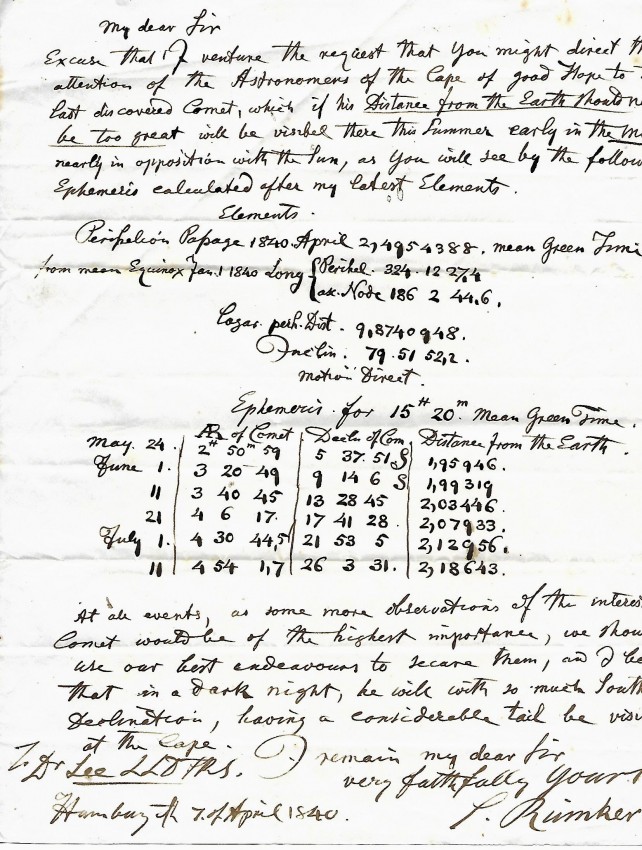 My dear Sir
Excuse that I venture the request that You might direct th
attention of the Astronomers of the Cape of good Hope to
last discovered Comet, which if his Distance from the Earth should n
be too great will be visibel there this Summer early in the M
nearly in opposition with the Sun, as You will see by the follow
Ephemeris calculated after my latest Elements.
Elements.
Perihelion Passage 1840 April 2,4954388. mean Green Time
from mean Equinox Jan. 1 1840 Long { Perihel. 324. 12 27,4
asc. Node 186 2 44,6.
Logar. perh. Dist. 9,8740948.
Inclin. 79. 51 52,2.
motion Direct.
Ephemeris for 15h 20m Mean Green Time.
AR of Comet Decln of Com. Distance from the Earth.
May. 24. 2h 50m 59 5 37. 51 S 1,95946.
June 1. 3 20 49 9 14 6 S 1,99319
11 3 40 45 13 28 45 2,03446.
21 4 6 17. 17 41 28. 2,07933.
July 1. 4 30 44,5 21 53 5 2,12956.
11 4 54 1,7 26 3 31. 2,18643.
At all events, as some more observations of the interes
Comet would be of the highest importance, we shou
use our best endeavours to secure them, and I be
that in a dark night, he will with so much South
Declination, having a considerable tail be visi
at the Cape.
I remain my dear Sir
To Dr Lee LLD FRS. very faithfully Yours
Hamburgh 7. of April 1840. Rümker